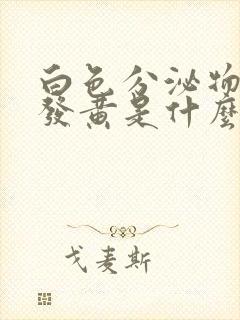 白色分泌物
發黃是什麼
戈麦斯